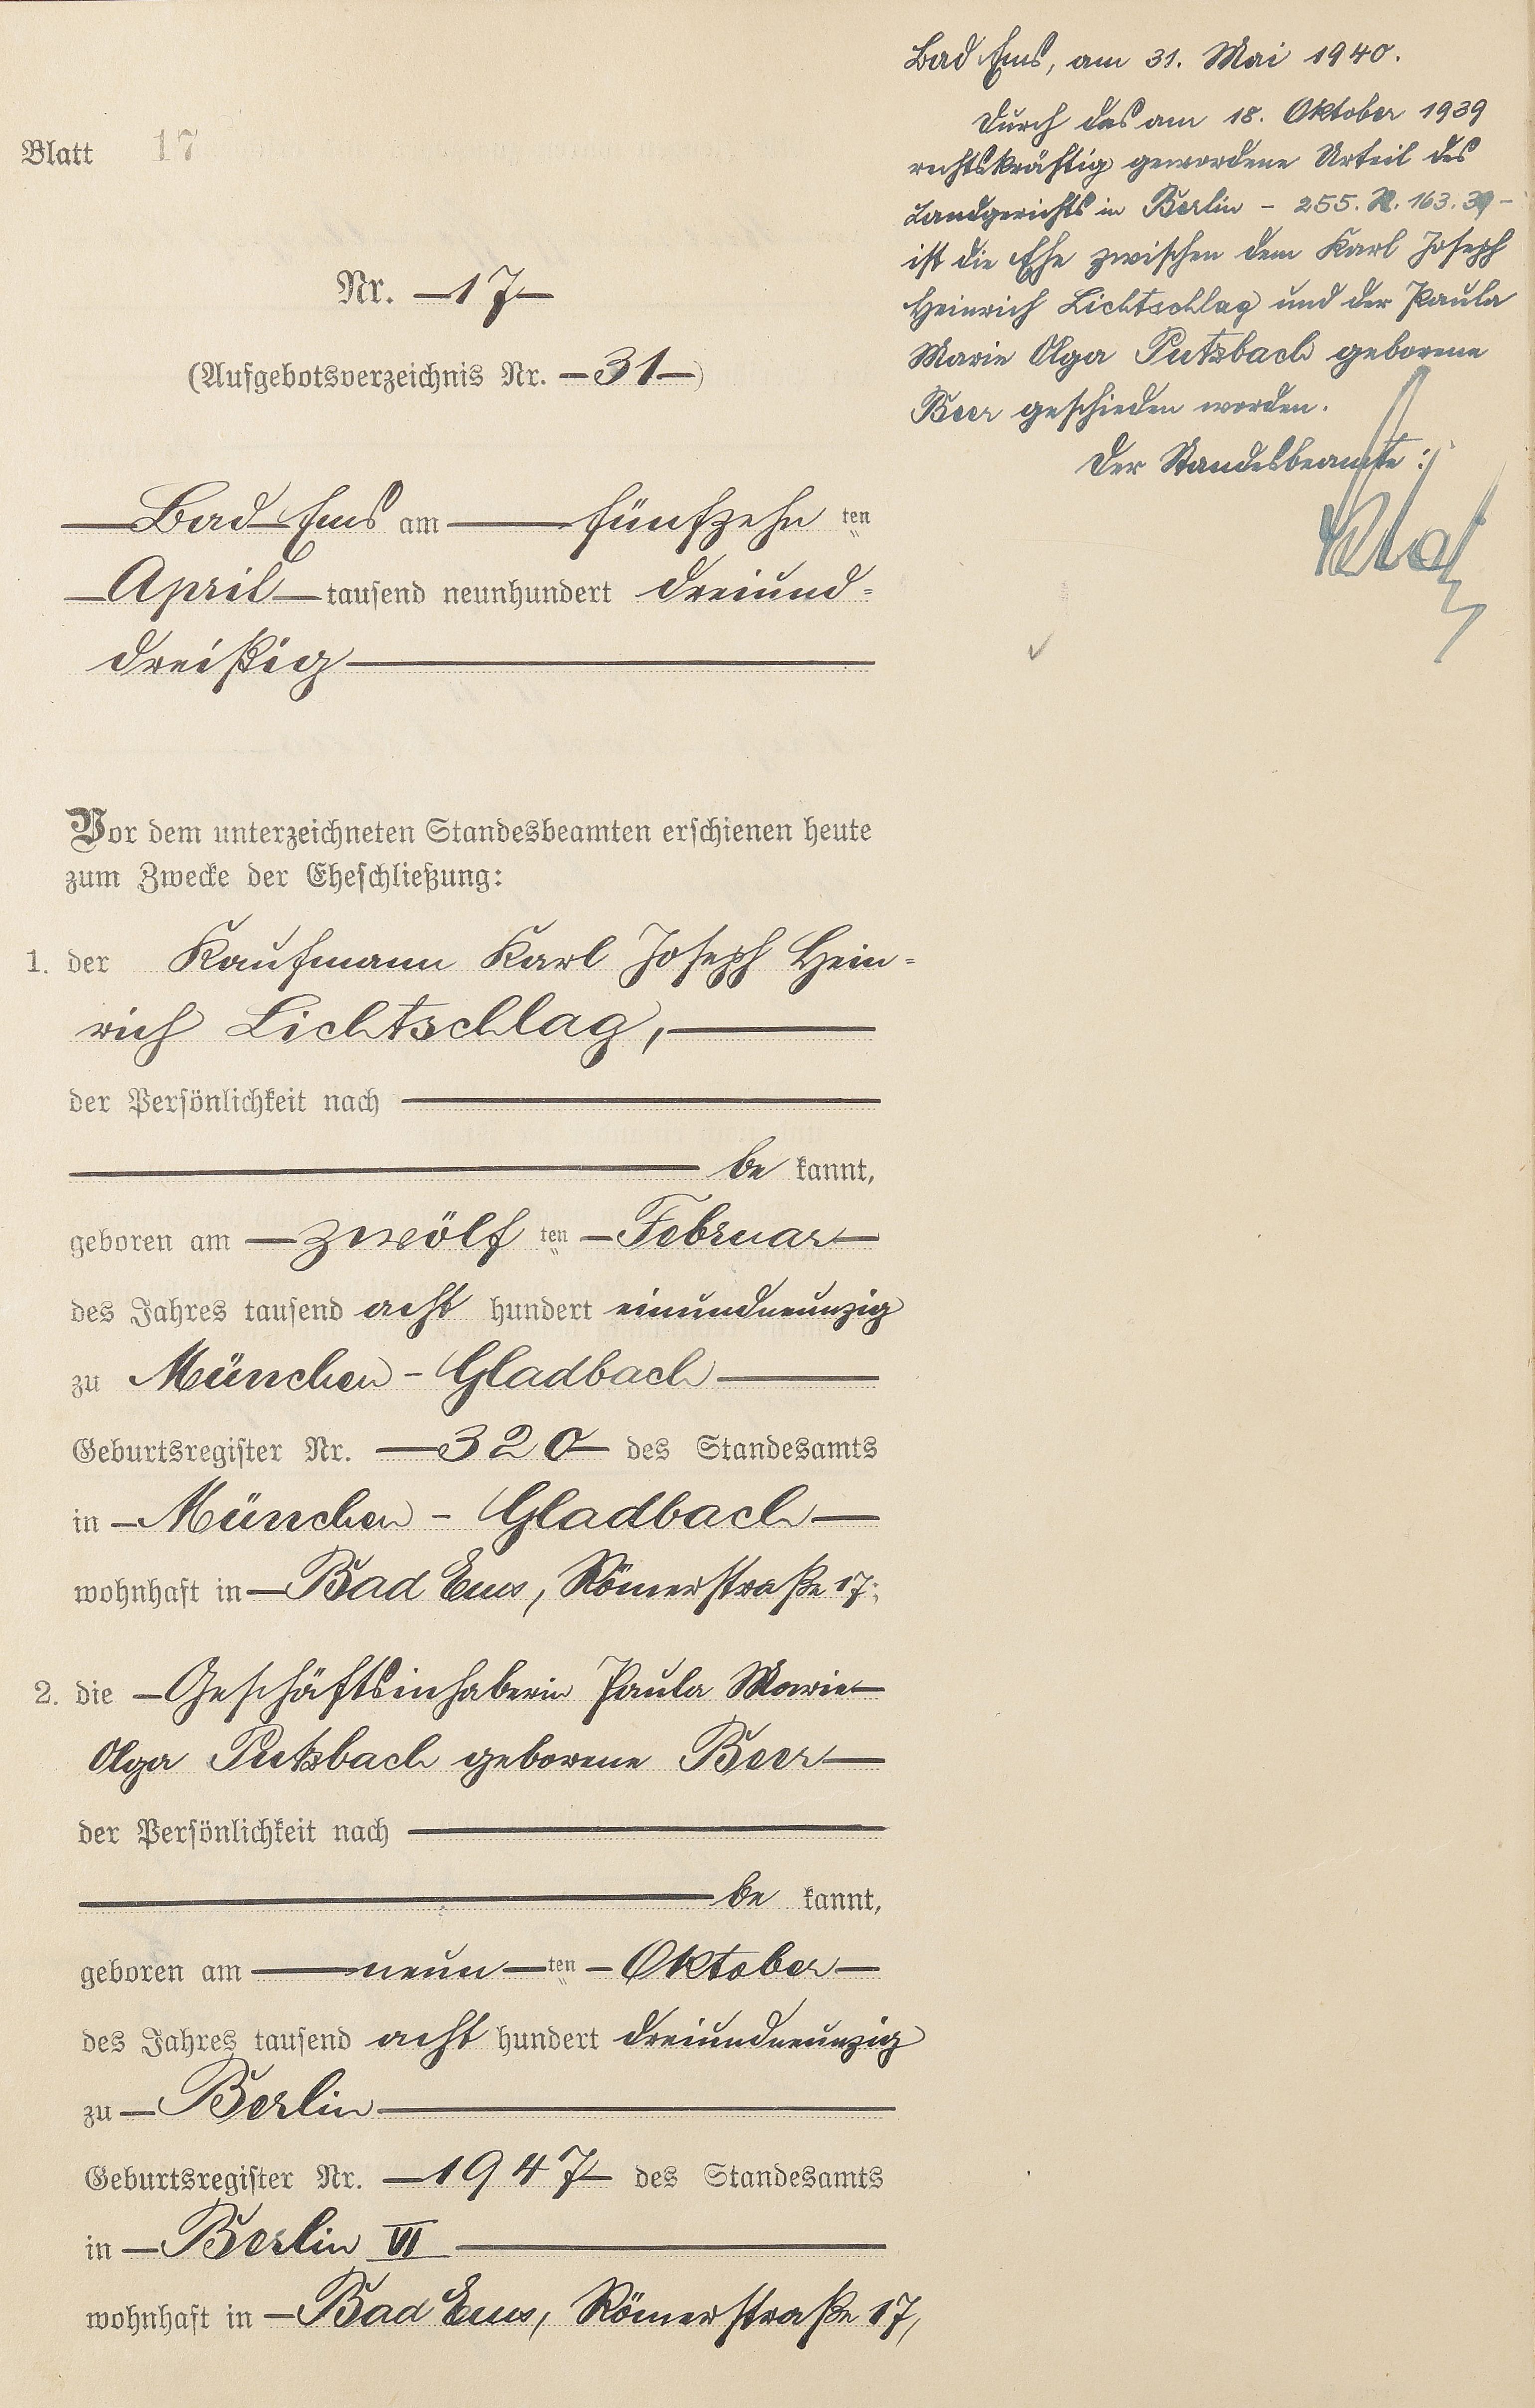 Blatt 17
Nr. 17
(Aufgebotsverzeichnis Nr. 31)
Bad Ems am fünfzehn ten
April tausend neunhundert dreiund=
dreißig
Vor dem unterzeichneten Standesbeamten erschienen heute
zum Zwecke der Eheschließung:
1. der Kaufmann Karl Joseph Hein=
rich Lichtschlag,
der Persönlichkeit nach
be kannt,
geboren am zwölf ten Februar
des Jahres tausend acht hundert einundneunzig
zu München-Gladbach
Geburtsregister Nr. 320 des Standesamts
in München - Gladbach
wohnhaft in Bad Ems, Römerstraße 17;
2. die Geschäftsinhaberin Paula Marie
Olga Putzbach geborene Beer
der Persönlichkeit nach
be kannt,
geboren am neun ten Oktober
des Jahres tausend acht hundert dreiundneunzig
zu Berlin
Geburtsregister Nr. 1947 des Standesamts
in Berlin VI
wohnhaft in Bad Ems, Römerstraße 17,
Bad Ems, am 31. Mai 1940.
Durch das am 18. Oktober 1939
rechtskräftig gewordene Urteil des
Landgerichts in Berlin - 255. R. 163. 39 -
ist die Ehe zwischen dem Karl Joseph
Heinrich Lichtschlag und der Paula
Marie Olga Putzbach geborene
Beer geschieden worden.
Der Standesbeamte: